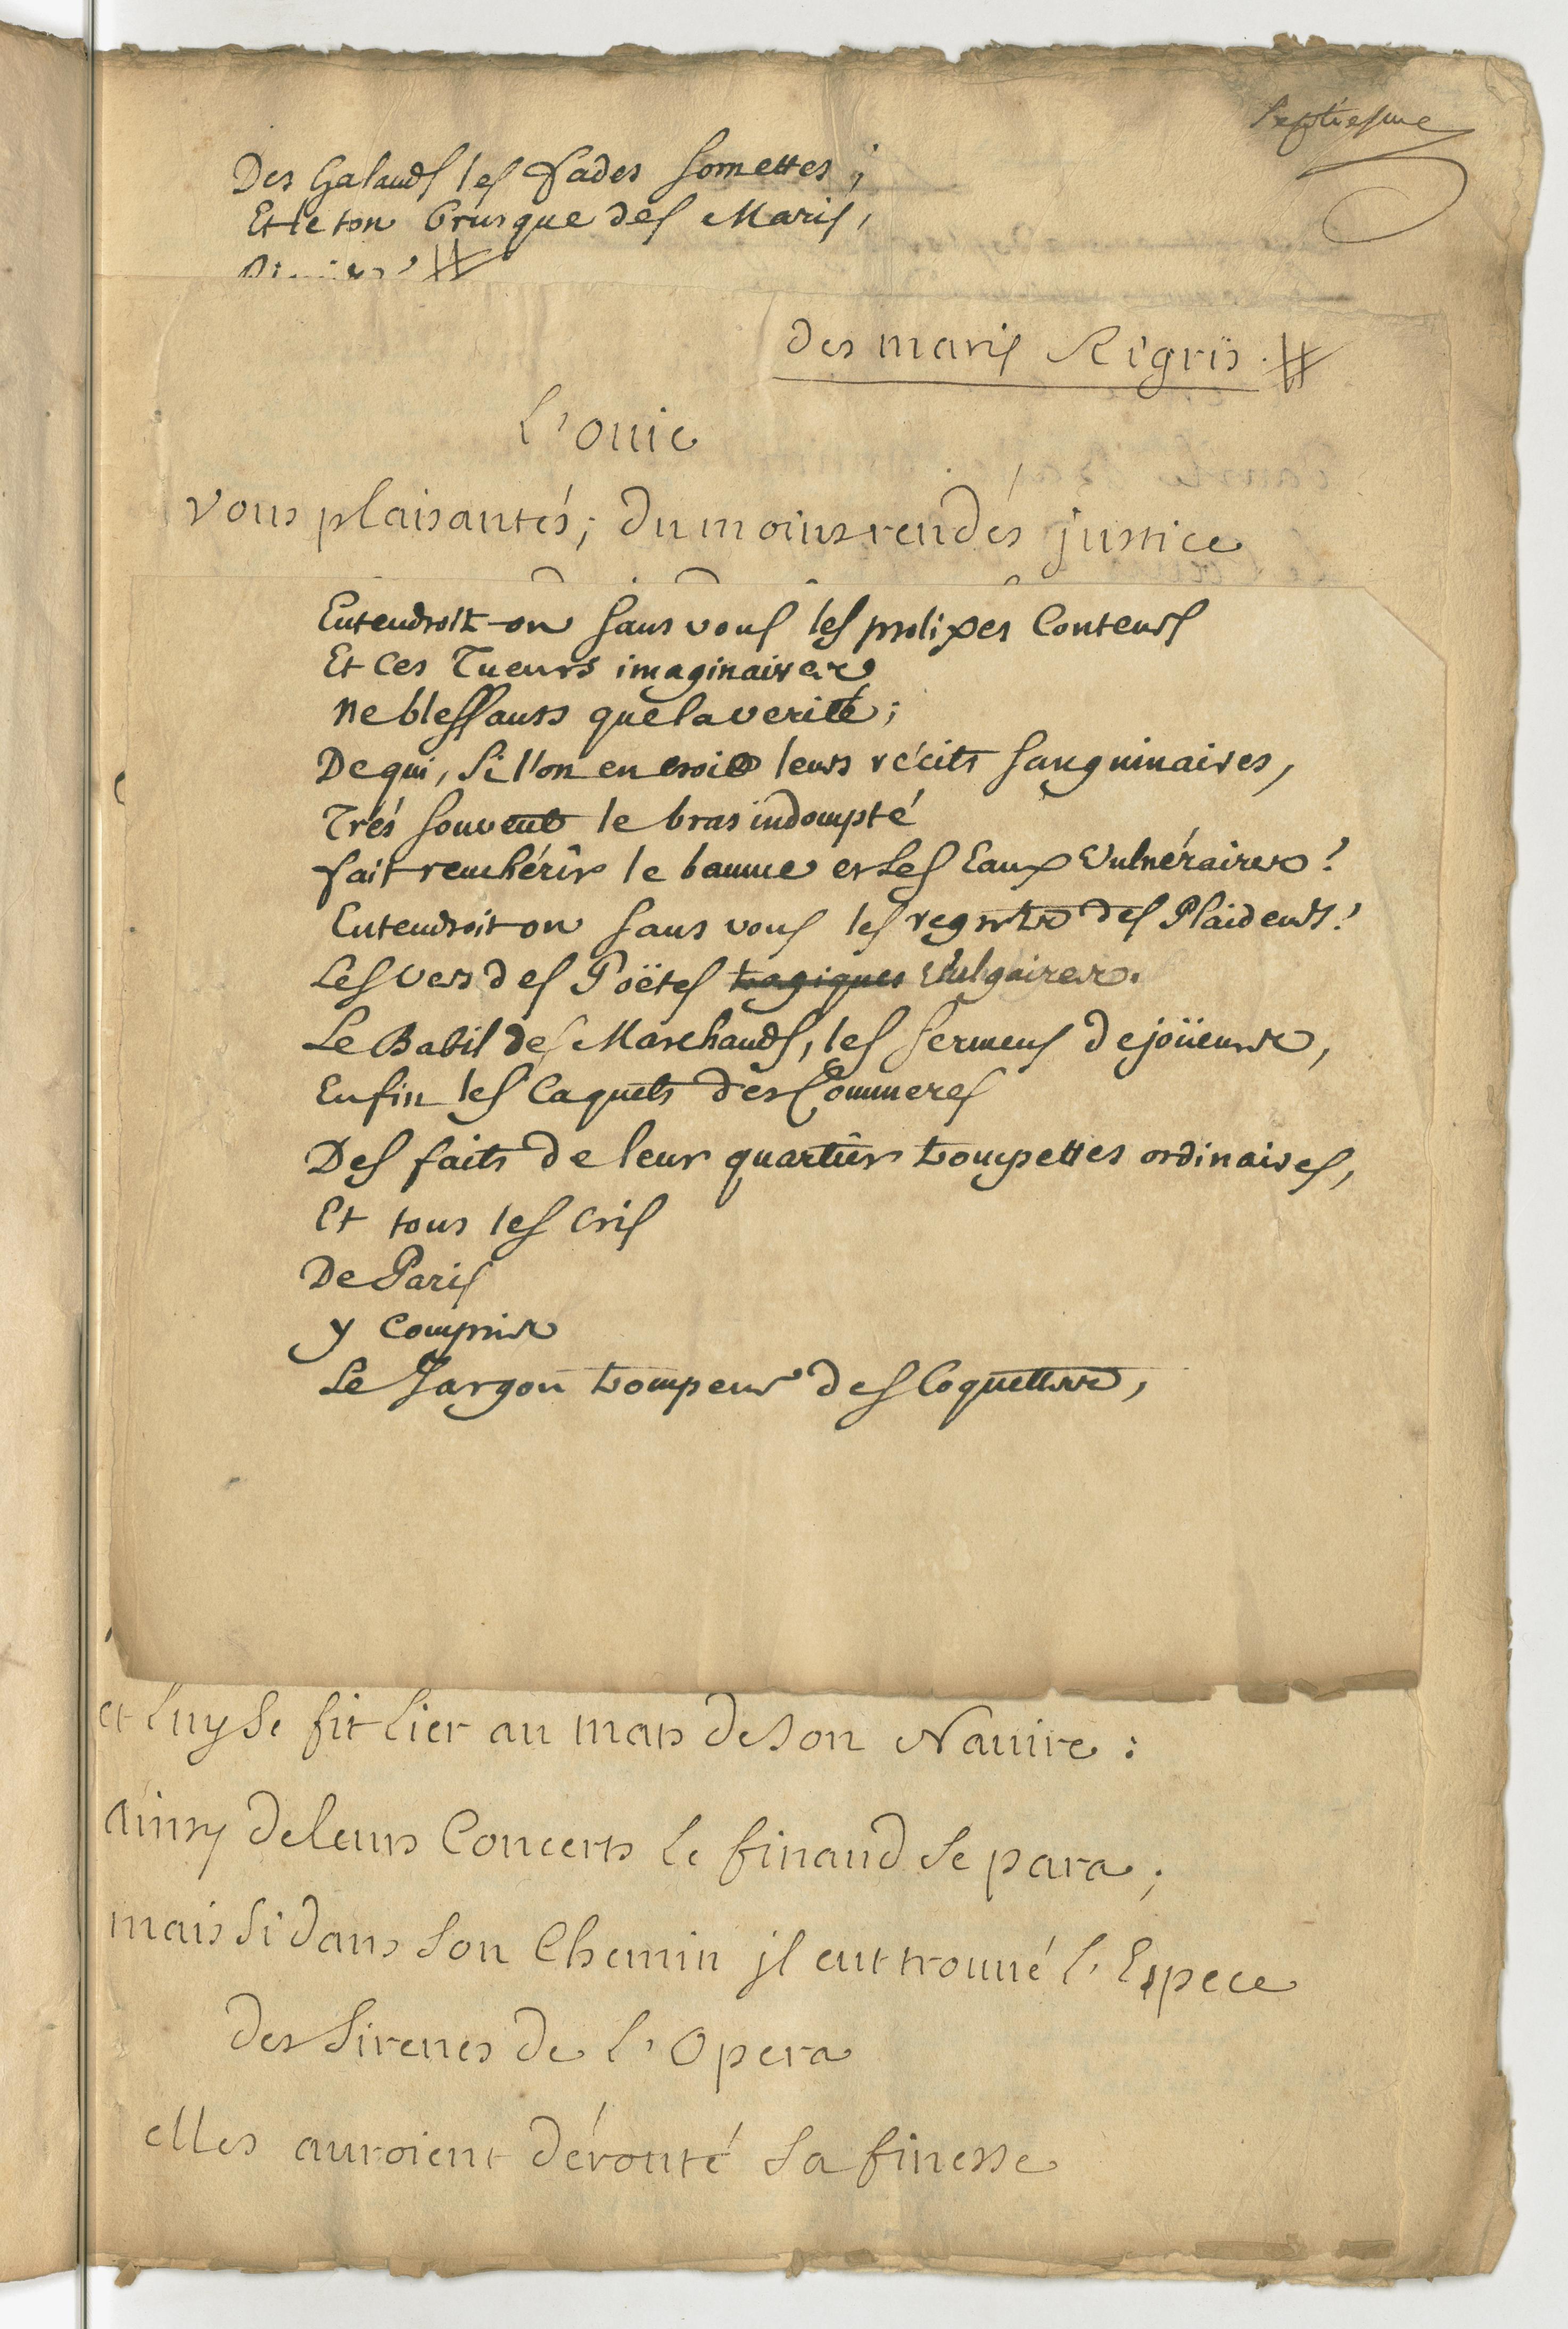 Septiesme
Des Galands les fades sornettes;
Et le ton brusque des Maris,
des maris Rigris.
L'ouie
vous plaisantés; du moins rendés justice
Entendroit-on sans vous les prolixes Conteurs
Et Ces Tueurs imaginaires
ne blessants que la verité;
De qui, si l'on en croit leurs récits sanguinaires,
Trés souvent le bras indompté
fait renchérir le baume et les Eaux Vulnéraires?
Entendroit on sans vous les regrets des Plaideurs?
Les Vers des Poëtes tragiques Vulgaires.
Le Babil des Marchands, les sermens de joüeurs,
Enfin les Caquets des Commeres
Des faits de leur quartier trompettes ordinaires,
Et tous les Cris
De Paris
y Compris
Le Jargon trompeur des Coquettes,
et luy se fit lier au mats de son Navire:
ainsy de leurs Concerts le finaud se para;
mais si dans son Chemin jl eut trouvé l'Espece
des Sirenes de l'Opera
elles auroient dérouté sa finesse